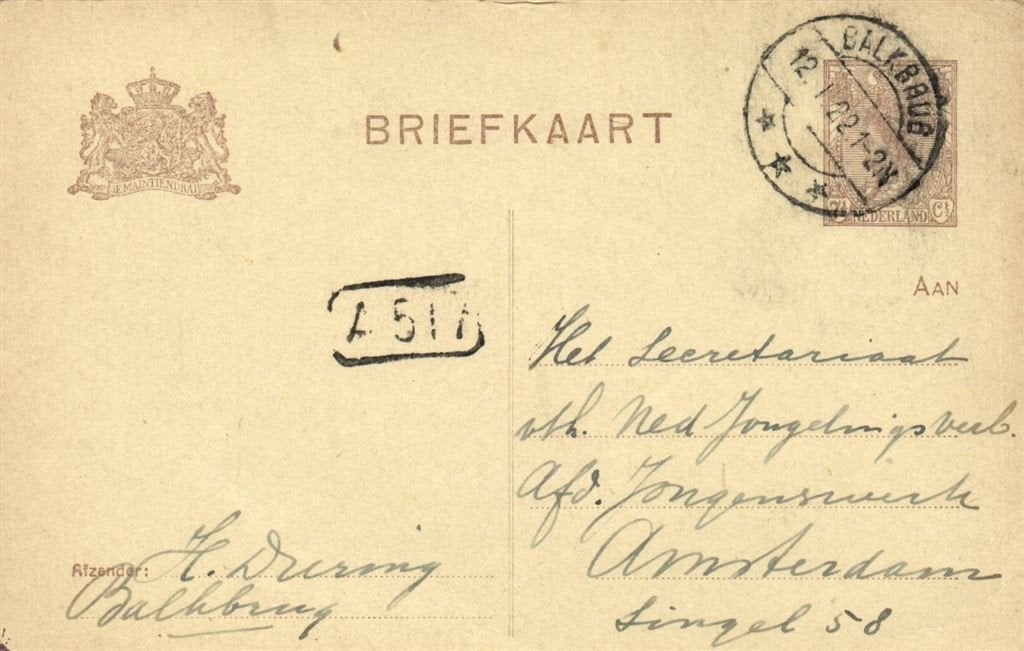 BALKBRUG
12.1.22.1-2N
JE MAINTIENDRAI
BRIEFKAART
7½ NEDERLAND Ct
AAN
A 517
Het Secretariaat
v/h. Ned Jongelingsverb.
Afd. Jongenswerk
Amsterdam
Singel 58
Afzender: H. Duering
Balkbrug